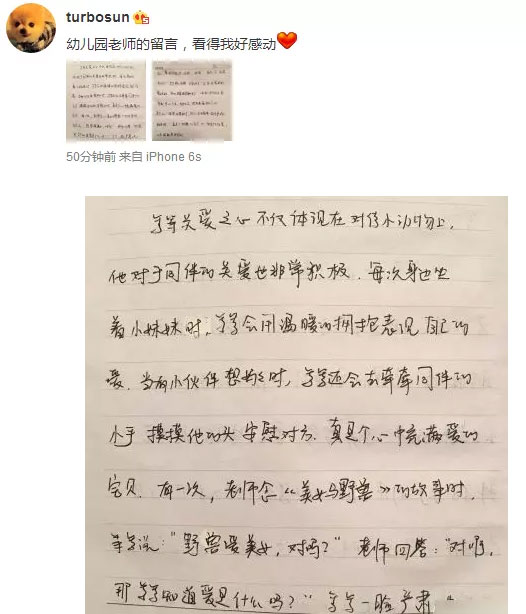 turbosun
幼儿园老师的留言，看得我好感动
50分钟前 来自 iPhone 6s
等等关爱之心不仅体现在对待小动物上,
他对于同伴的关爱也非常积极.每次身边坐
着小妹妹时,等等会用温暖的拥抱表现自己的
爱.当有小伙伴想妈妈时,等等还会去牵牵同伴的
小手 摸摸他的头 安慰对方.真是个心中充满爱的
宝贝.有一次,老师念《美女与野兽》的故事时.
等等说:"野兽爱美女,对吗?" 老师回答:"对啊,
那等等知道爱是什么吗?" 等等一脸严肃"